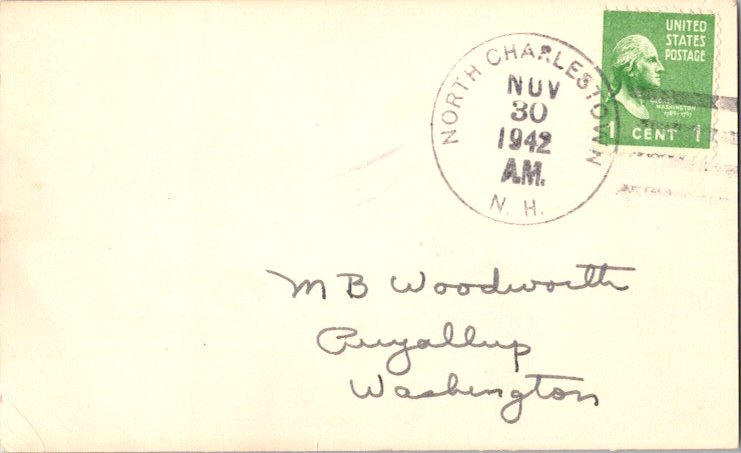 NORTH CHARLESTOWN
NOV
30
1942
A.M.
N. H.
UNITED
STATES
POSTAGE
WASHINGTON
1 CENT 1
M B Woodworth
Puyallup
Washington